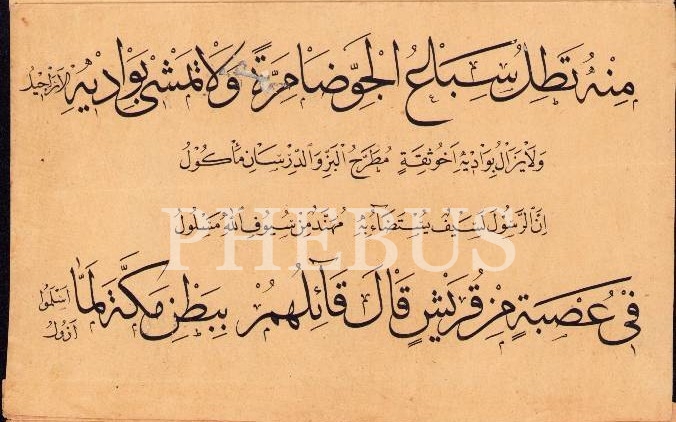 مِنْهُ تَظَلُّ سِبَاعُ الْجَوِّ ضَامِرَةً وَلَا تَمَشَّى بِوَادِيهِ الْاَرَاجِيلُ
وَلَا يَزَالُ بِوَادِيهِ اَخُو ثِقَةٍ مُطَرَّحُ الْبَزِّ وَالدِّرْسَانِ مَأْكُولُ
اِنَّ الرَّسُولَ لَسَيْفٌ يُسْتَضَاءُ بِهِ مُهَنَّدٌ مِنْ سُيُوفِ اللهِ مَسْلُولُ
PHEBUS
فِي عُصْبَةٍ مِنْ قُرَيْشٍ قَالَ قَائِلُهُمْ بِبَطْنِ مَكَّةَ لَمَّا اَسْلَمُوا